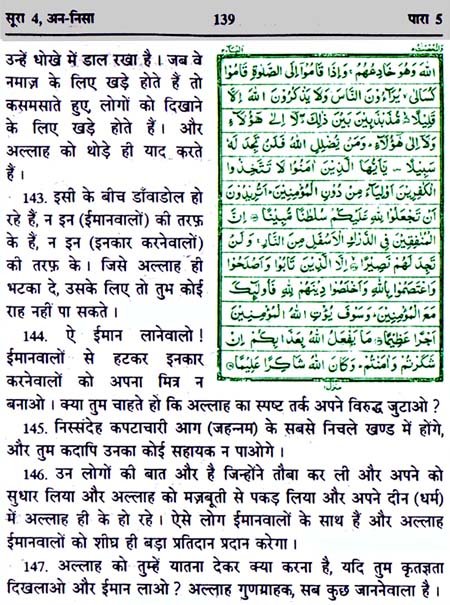 सूरा 4, अन-निसा 139 पारा 5
उन्हें धोखे में डाल रखा है। जब वे
नमाज़ के लिए खड़े होते हैं तो
कसमसाते हुए, लोगों को दिखाने
के लिए खड़े होते हैं। और
अल्लाह को थोड़े ही याद करते
हैं।
143. इसी के बीच डाँवाडोल हो
रहे हैं, न इन (ईमानवालों) की तरफ़
के हैं, न इन (इनकार करनेवालों)
की तरफ़ के। जिसे अल्लाह ही
भटका दे, उसके लिए तो तुम कोई
राह नहीं पा सकते।
144. ऐ ईमान लानेवालो!
ईमानवालों से हटकर इनकार
करनेवालों को अपना मित्र न
اللهَ وَهُوَ خَادِعُهُمْ وَإِذَا قَامُوٓا إِلَى الصَّلٰوةِ قَامُوا
كُسَالٰى يُرَآءُونَ النَّاسَ وَلَا يَذْكُرُونَ اللهَ إِلَّا
قَلِيلًا مُذَبْذَبِينَ بَيْنَ ذٰلِكَ لَآ إِلٰى هٰٓؤُلَآءِ
وَلَآ إِلٰى هٰٓؤُلَآءِ وَمَنْ يُضْلِلِ اللهُ فَلَنْ تَجِدَ لَهٗ
سَبِيلًا يٰٓأَيُّهَا الَّذِينَ اٰمَنُوا لَا تَتَّخِذُوا
الْكٰفِرِينَ أَوْلِيَآءَ مِنْ دُونِ الْمُؤْمِنِينَ أَتُرِيدُونَ
أَنْ تَجْعَلُوا لِلّٰهِ عَلَيْكُمْ سُلْطٰنًا مُّبِينًا إِنَّ
الْمُنٰفِقِينَ فِي الدَّرْكِ الْأَسْفَلِ مِنَ النَّارِ وَلَنْ
تَجِدَ لَهُمْ نَصِيرًا إِلَّا الَّذِينَ تَابُوا وَأَصْلَحُوا
وَاعْتَصَمُوا بِاللهِ وَأَخْلَصُوا دِينَهُمْ لِلّٰهِ فَأُولٰٓئِكَ
مَعَ الْمُؤْمِنِينَ وَسَوْفَ يُؤْتِ اللهُ الْمُؤْمِنِينَ
أَجْرًا عَظِيمًا مَا يَفْعَلُ اللهُ بِعَذَابِكُمْ إِنْ
شَكَرْتُمْ وَاٰمَنْتُمْ وَكَانَ اللهُ شَاكِرًا عَلِيمًا
बनाओ। क्या तुम चाहते हो कि अल्लाह का स्पष्ट तर्क अपने विरुद्ध जुटाओ?
145. निस्संदेह कपटाचारी आग (जहन्नम) के सबसे निचले खण्ड में होंगे,
और तुम कदापि उनका कोई सहायक न पाओगे।
146. उन लोगों की बात और है जिन्होंने तौबा कर ली और अपने को
सुधार लिया और अल्लाह को मज़बूती से पकड़ लिया और अपने दीन (धर्म)
में अल्लाह ही के हो रहे। ऐसे लोग ईमानवालों के साथ हैं और अल्लाह
ईमानवालों को शीघ्र ही बड़ा प्रतिदान प्रदान करेगा।
147. अल्लाह को तुम्हें यातना देकर क्या करना है, यदि तुम कृतज्ञता
दिखलाओ और ईमान लाओ? अल्लाह गुणग्राहक, सब कुछ जाननेवाला है।